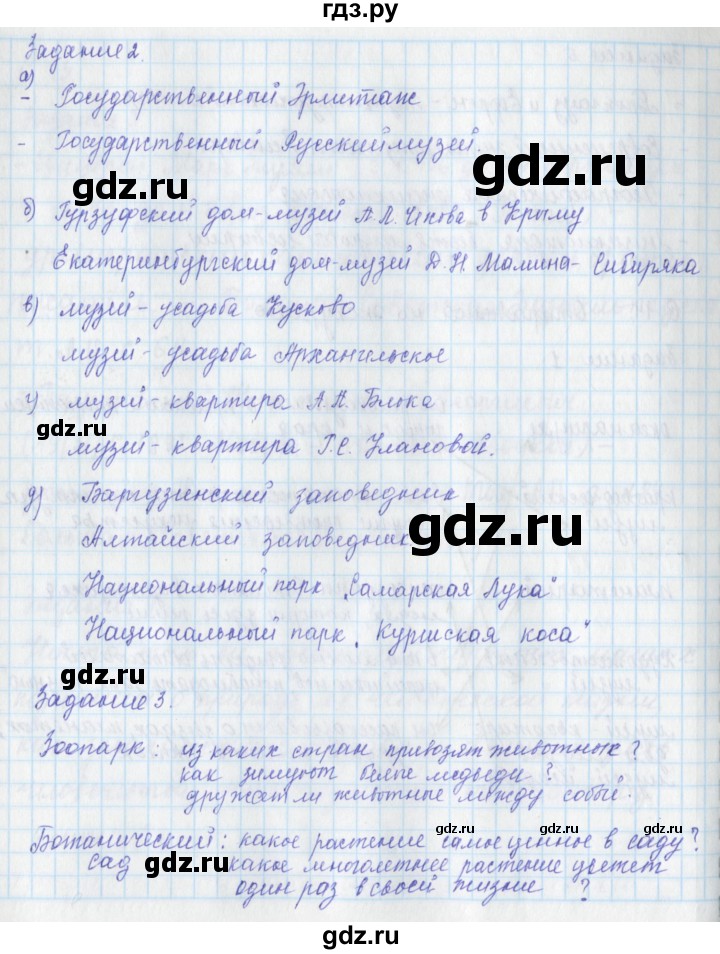 гдз.ру
Задание 2.
а)
- Государственный Эрмитаж
- Государственный Русский музей.
gdz.ru
gdz.ru
б) Гурзуфский дом-музей А.П. Чехова в Крыму
Екатеринбургский дом-музей Д.Н. Мамина-Сибиряка
в) музей-усадьба Кусково
музей-усадьба Архангельское
г) музей-квартира А.А. Блока
gdz.ru
музей-квартира Г.С. Улановой.
д) Баргузинский заповедник
gdz.ru
Алтайский заповедник
Национальный парк „Самарская Лука"
Национальный парк „Куршская коса"
gdz.ru
Задание 3.
Зоопарк: из каких стран привозят животных?
как зимуют белые медведи?
дружат ли животные между собой.
gdz.ru
gdz.ru
Ботанический: какое растение самое ценное в саду?
сад
gdz.ru
какое многолетнее растение цветет
один раз в своей жизни ?
gdz.ru
gdz.ru